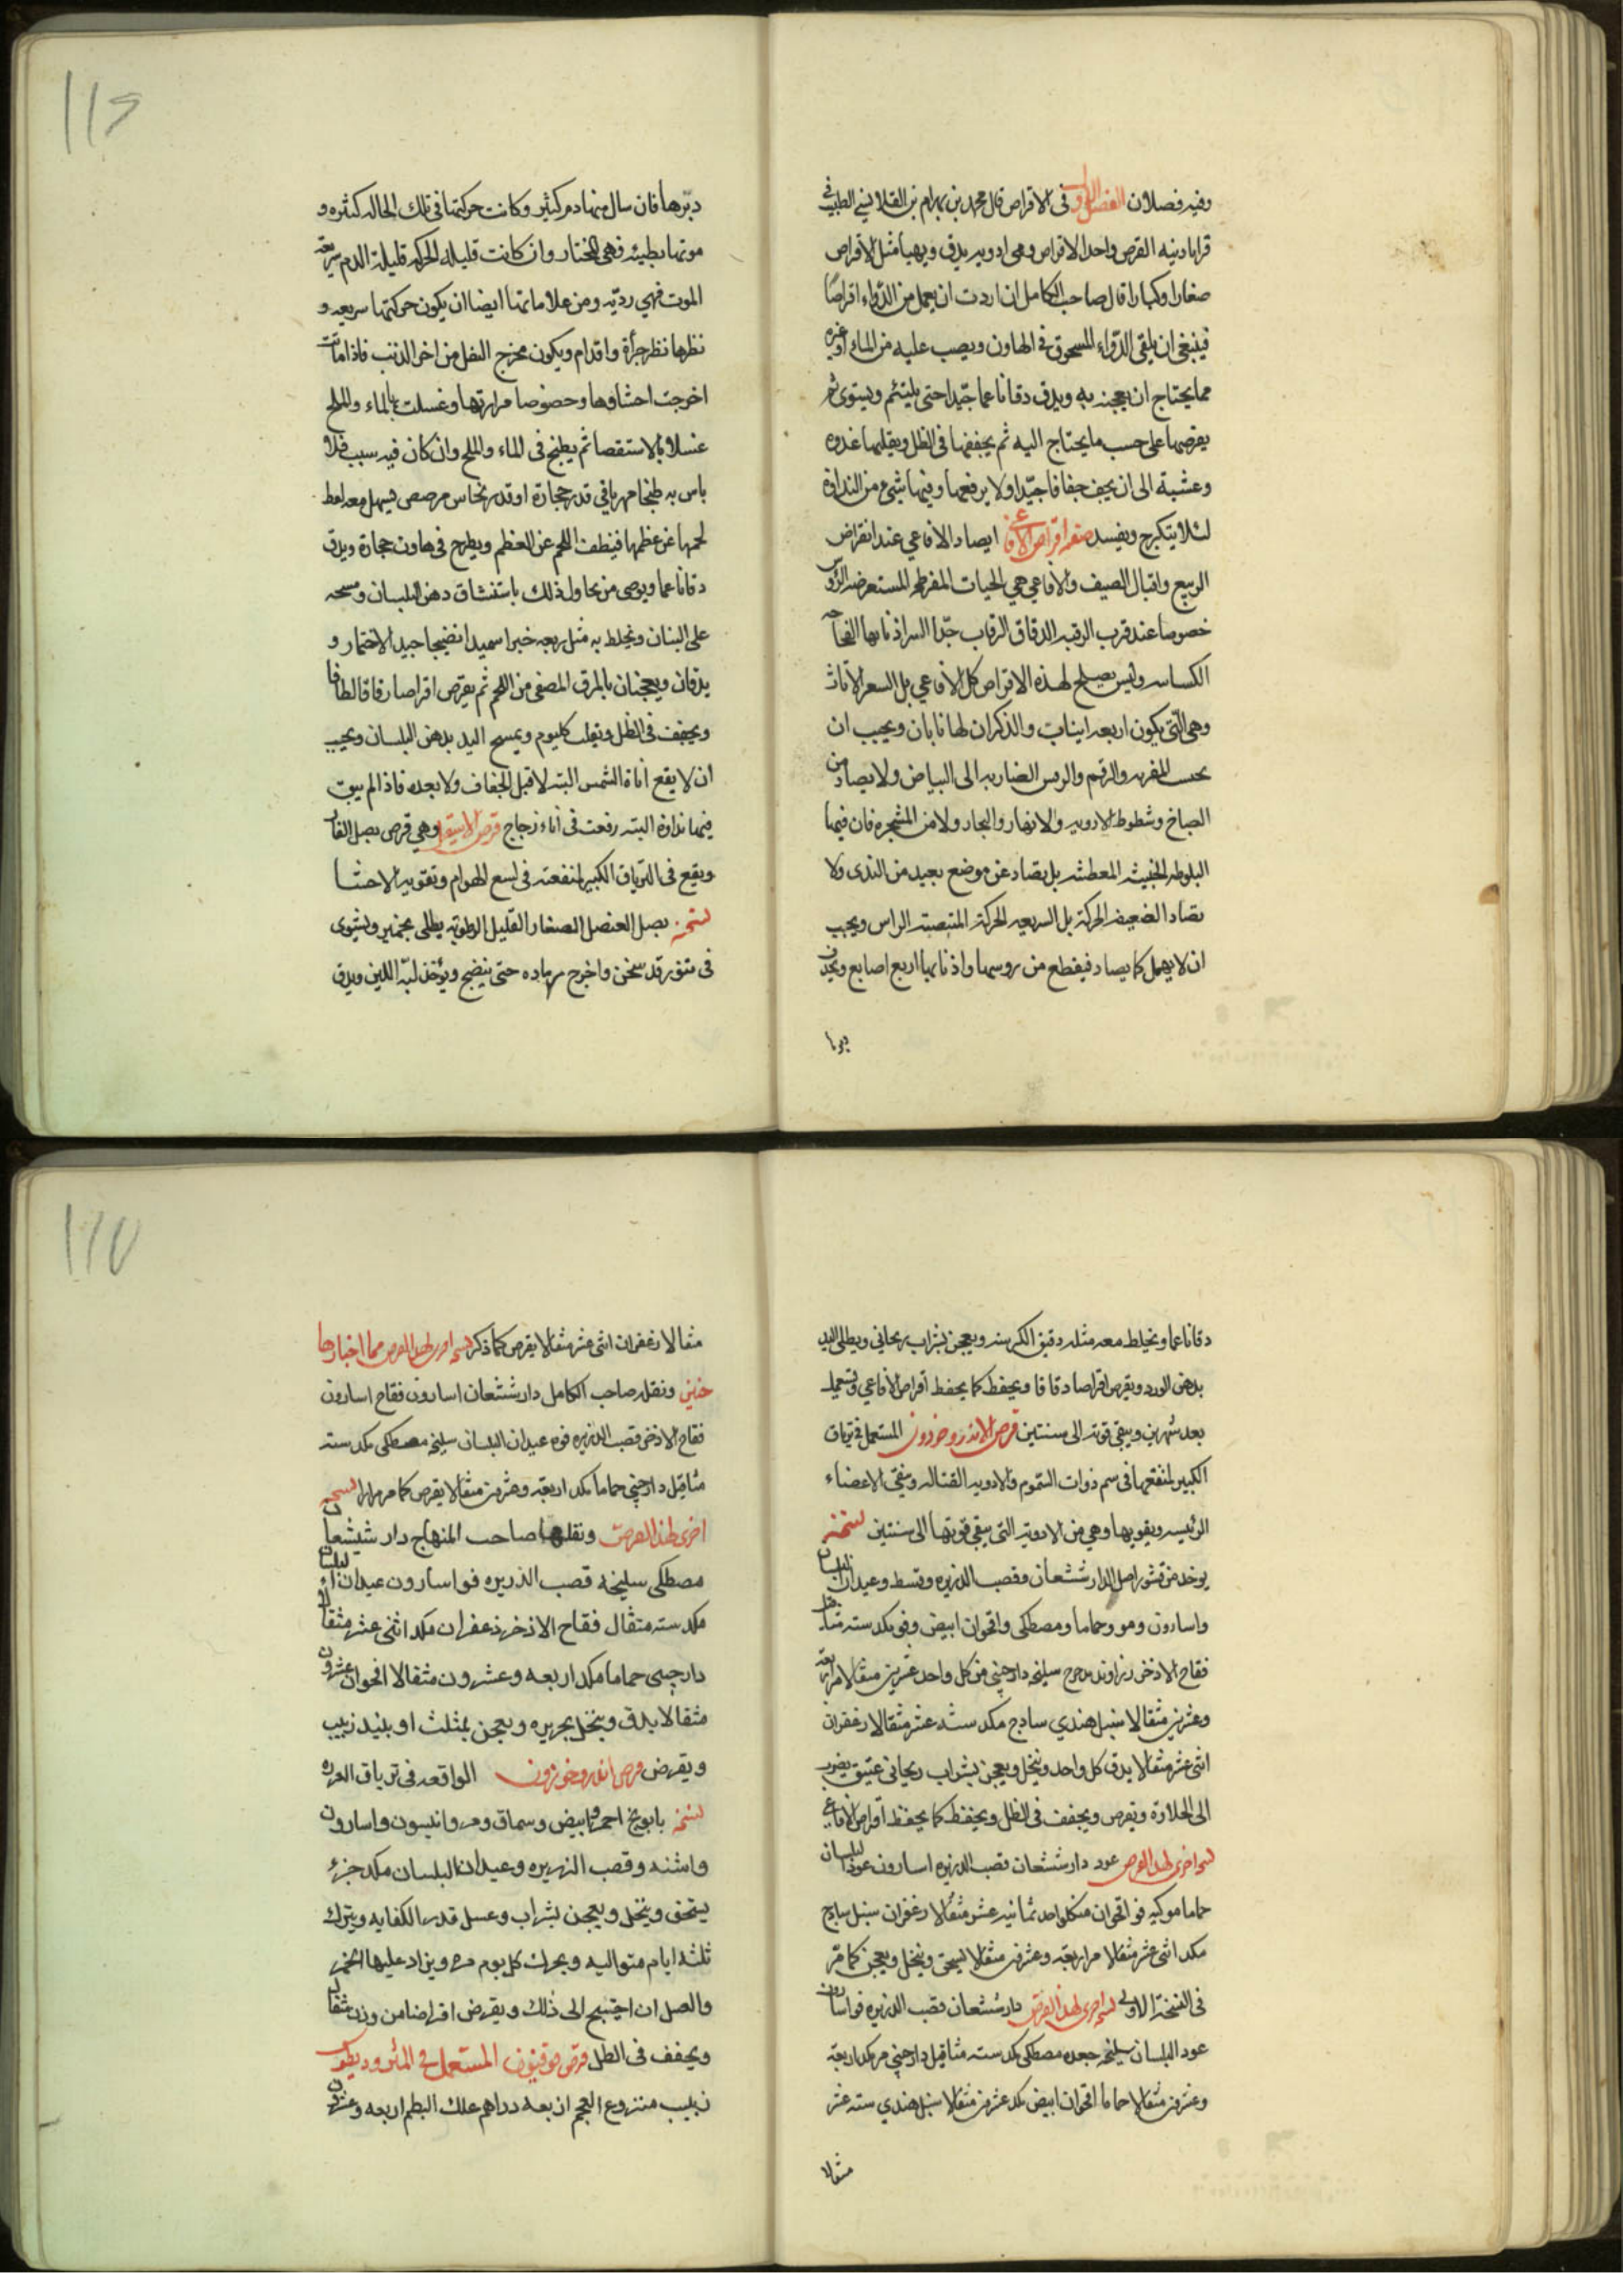 وفيه فصلان الفصل الاول فى الاقراص قال محمد بن بهرام بن القلانسي الطبيب في
قراباذينه القرص واحد الاقراص وهى ادويه يدق ويهيأ مثل الاقراص
صغارا وكبارا قال صاحب الكامل ان اردت ان يعمل من الدّواء اقراصًا
فينبغى ان يلقى الدّواء المسحوق فى الهاون ويصب عليه من الماء او غيره
مما يحتاج ان يعجنه به ويدق دقا ناعما جيّدا حتى يلتئم ويستوى ثم
يقرصها على حسب ما يحتاج اليه ثم يجففها فى الظل ويقلبها غدوه
وعشية الى ان يجف جفافا جيّدا ولا يرفعها وفيها شىء من النداوة
لئلا يتكرج ويفسد صفه اقراص الافاعى ايصاد الافاعي عند انقراض
الربيع واقبال الصيف والافاعي هي الحيات المفرطحه المستعرضه الرؤس
خصوصا عند قرب الرقبه الدقاق الرقاب جدّا البتر اذنابها
وليس يصلح لهذه الاقراص كل الافاعي بل الاناث
وهى الّتى يكون اربعه انياب والذكران لها نابان ويجب ان
الى البياض ولا يصاد من
السباخ وشطوط الاوديه والانهار والبحار ولا من المشجره فان فيها
البلوطه الخبيثه المعطشه بل يصاد عن موضع بعيد من الندى ولا
يصاد الضعيفه الحركة بل السريعه الحركة المنتصبة الراس ويجب
ان لا يهمل كما يصاد فيقطع من روسها واذنابها اربع اصابع
دبرها
دبّرها فان سال منها دم كثير وكانت حركتها فى تلك الحاله كثيره و
موتها بطيئه فهى المختار وان كانت قليله الحركه قليلة الدم سريعة
الموت فهي رديّه ومن علاماتها ايضا ان يكون حركتها سريعه و
نظرها نظر جرأة واقدام ويكون مخرج الثفل من اخر الذنب فاذا ماتت
اخرجت احشاوها وخصوصا مرارتها وغسلت بالماء والملح
غسلا بالاستقصا ثم يطبخ فى الماء والملح وان كان فيه سبب فلا
باس به طبخا مهريا في قدر حجارة او قدر نحاس مرصص يسهل معه لقط
لحمها عن عظمها فينظف اللحم عن العظم ويطرح فى هاون حجارة ويدق
دقا ناعما ويوصى من يحاول ذلك باستنشاق دهن البلسان ومسحه
على البنان ويخلط به مثل ربعه خبزا سميدا نضيجا جيد الاختمار و
يدقان ويعجنان بالمرق المصفى من اللحم ثم يقرّص اقراصا رقاقا لطافا
ويجفف فى الظل ويقلب كل يوم ويمسح اليد بدهن البلسان ويجب
ان لا يقع اناة الشمس البته لا قبل الجفاف ولا بعده فاذا لم يبق
فيها نداوة البته رفعت فى اناء زجاج قرص الاسقيل وهي قرص بصل الفار
ويقع فى الترياق الكبير لمنفعته فى لسع الهوام وتقويه الاحشا
نسخته بصل العنصل الصغار القليل الرطوبة يطلى بخمير ويشوى
فى تنور قد سخن واخرج رماده حتى ينضج ويؤخذ لبّه اللين ويدق
دقا ناعما ويخلط معه مثله دقيق الكرسنه ويعجن بشراب ريحاني ويطلى اليد
بدهن الورد ويقرص اقراصا دقاقا ويحفظ كما يحفظ اقراص الافاعي ويستعمل
بعد شهرين ويبقى قوته الى سنتين قرص الاندروخورون المستعمل فى ترياق
الكبير لمنفعها فى سم ذوات السّموم والادويه القتاله وينقي الاعضاء
الرئيسه ويقويها وهي من الادوية التى يبقى قوتها الى سنتين نسخته
يوخذ من قشور اصل الدارشيشعان وقصب الذريره وقسط وعيدان البلسان
واسارون ومو وحماما ومصطكى واقحوان ابيض وفو مكد سته مثاقيل
فقاح الاذخر زراوند مدحرج سليخه دارچينى من كل واحد عشرين مثقالا مر اربعة
وعشرين مثقالا سنبل هندي ساذج مكد سته عشر مثقالا زعفران
اثنى عشر مثقالا يدق كل واحد وينخل ويعجن بشراب ريحانى عتيق يضرب
الى الحلاوة ويقرص ويجفف فى الظل ويحفظ كما يحفظ اقراص الافاعي
نسخه اخرى لهذا القرص عود دارشيشعان قصب الذريره اسارون عود البلسان
حماما فو اقحوان من كل واحد ثمانيه عشر مثقالا زعفران سنبل ساذج
مكد اثنى عشر مثقالا مر اربعة وعشرين مثقالا يسحق وينخل ويعجن كما مرّ
فى النسخة الاولى نسخه اخرى لهذا القرص دارشيشعان قصب الذريره فو اسارون
عود البلسان سليخه جعده مصطكى مكد سته مثاقيل دارچينى مر مكد اربعة
وعشرين مثقالا حماما اقحوان ابيض مكد عشرين مثقالا سنبل هندي سته عشر
مثقالا
مثقالا زعفران اثنى عشر مثقالا يقرص كما ذكر نسخه اخرى لهذا القرص مما اختارها
حنين ونقله صاحب الكامل دارشيشعان اسارون فقاح اسارون
فقاح الاذخر قصب الذريره فوه عيدان البلسان سليخه مصطكى مكد سته
مثاقيل دارچينى حماما مكد اربعة وعشرين مثقالا يقرص كما مر مرارا نسخه
اخرى لهذا القرص ونقلها صاحب المنهاج دار شيشعان
مصطكى سليخه قصب الذريره فو اسارون عيدان البلسان
مكد سته مثقال فقاح الاذخر زعفران مكد اثنى عشر مثقالا
دارچينى حماما مكد اربعه وعشرون مثقالا اقحوان عشرون
مثقالا يدق وينخل بحريره ويعجن بمثلث او بنبيذ زبيب
ويقرص قرص اندروخورون الواقعه فى ترياق العزره
نسخه بابونج احمر وابيض وسماق ومر وانيسون واسارون
واشنه وقصب الذريره وعيدان البلسان مكد جزء
يسحق وينخل ويعجن بشراب وعسل قدر الكفايه ويترك
ثلثه ايام متواليه ويحرك كل يوم مره ويزاد عليها الخمر
والعسل ان احتيج الى ذلك ويقرص اقراصا من وزن مثقال
ويجفف فى الظل قرص قوفيون المستعمل فى المثروديطوس
زبيب منزوع العجم اربعه دراهم علك البطم اربعه وعشرون